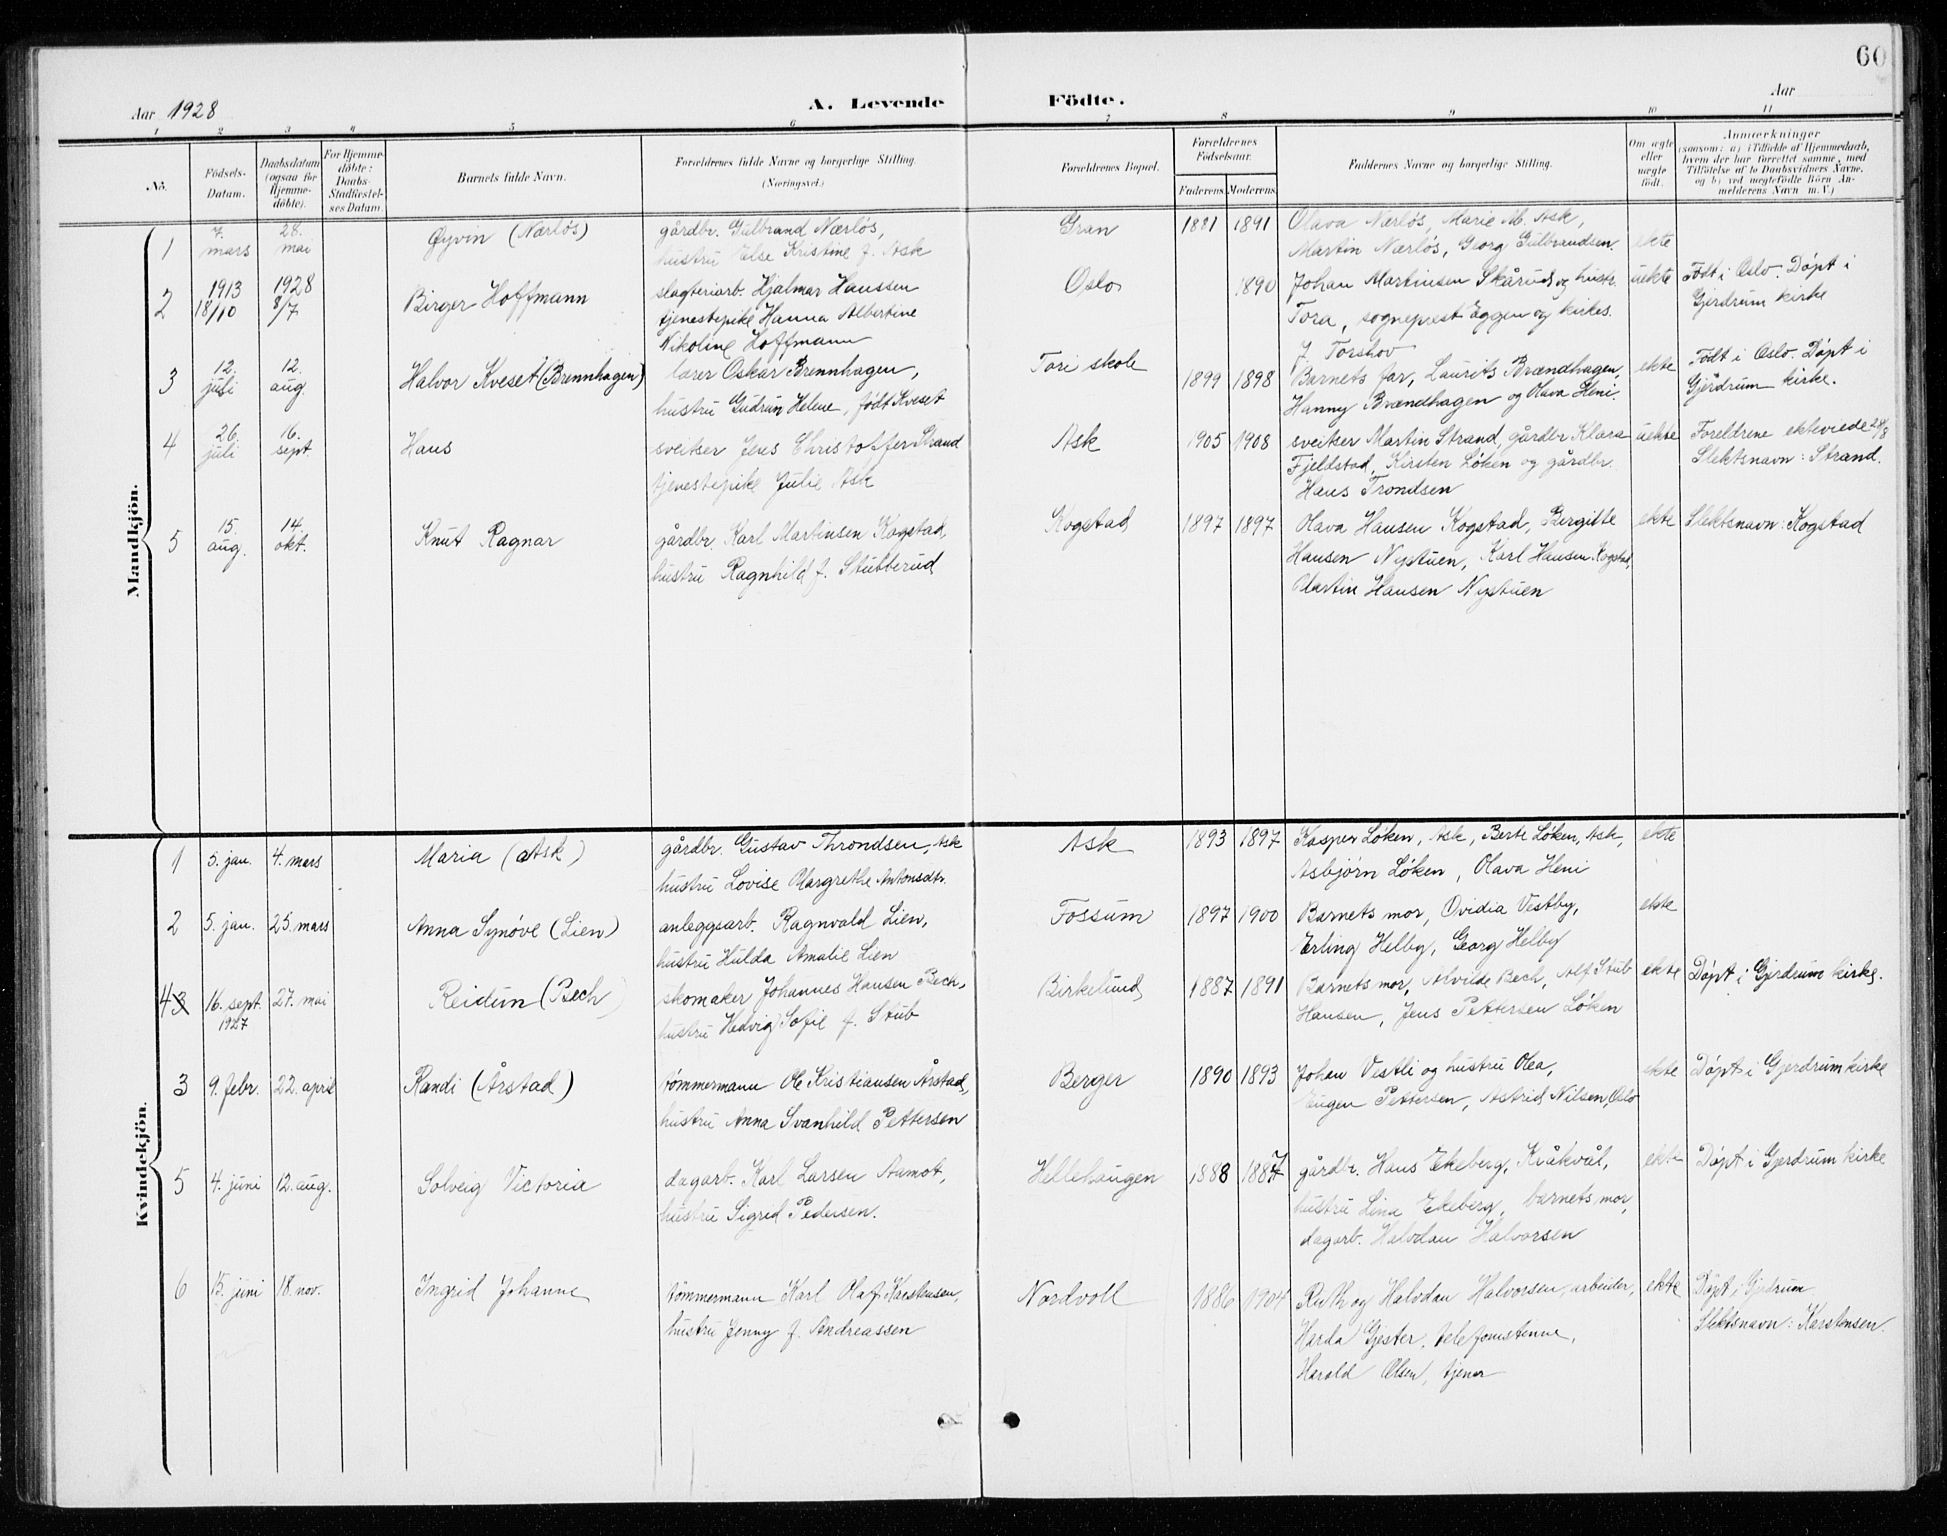 60
Aar 1928
A. Levende Födte.
Aar
1 2 3 4 5 6 7 8 9 10 11
No.
Födsels-Datum.
Daabsdatum (ogsaa for Hjemme-döbte).
For Hjemme-döbte: Daabs-Stadfæstel-ses Datum.
Barnets fulde Navn.
Forældrenes fulde Navne og borgerlige Stilling.
(Næringsvei.)
Forældrenes Bopæl.
Forældrenes Födselsaar.
Faderens. Moderens.
Faddernes Navne og borgerlige Stilling.
Om ægte eller uægte födt.
Anmærkninger
(saasom: a) i Tilfælde af Hjemmedaab, hvem der har forrettet samme, med Tilföielse af to Daabsvidners Navne, og b) ved uægtefödte Börn An-melderens Navn m. V.)
Mandkjön.
1 7. mars 28. mai Øyvin (Nærløs)
gårdbr. Gulbrand Nærløs,
hustru Else Kristine f. Ask
Gran 1881 1891
Olava Nærløs, Marie M. Ask,
Martin Nærløs, Georg Gulbrandsen.
ekte
2 1913 18/10 1928 8/7 Birger Hoffmann
slagteriarb. Hjalmar Hanssen
tjenestepike Hanna Albertine
Nikoline Hoffmann
Oslo 1890
Johan Martinsen Skårud og hustr.
Tora, sogneprest Eggen og kirkes.
J. Torshov
uekte
Født i Oslo. Døpt i
Gjerdrum kirke
3 12. juli 12. aug. Halvor Kveset (Brennhagen)
lærer Oskar Brennhagen,
hustru Gudrun Helene, født Kveset
Tori skole 1899 1898
Barnets far, Laurits Brændhagen,
Hanny Brændhagen og Olava Heni.
ekte
Født i Oslo. Døpt i
Gjerdrum kirke.
4 26. juli 16. sept Hans
sveitser Jens Christoffer Strand
tjenestepike Julie Ask
Ask 1905 1908
sveitser Martin Strand, gårdbr Klara
Fjeldstad, Kirsten Løken og gårdbr.
Hans Trondsen
uekte
Foreldrene ekteviede 24/8
Slektsnavn: Strand.
5 15 aug. 14. okt. Knut Ragnar
gårdbr. Karl Martinsen Kogstad,
hustru Ragnhild f. Stubberud
Kogstad 1897 1897
Olava Hansen Kogstad, Bergitte
Hansen Nystuen, Karl Hansen Kogstad,
Martin Hansen Nystuen
ekte
Slektsnavn: Kogstad
Kvindekjön.
1 5. jan. 4. mars Maria (Ask)
gårdbr. Gustav Throndsen, Ask
hustru Lovise Margrethe Antonsdtr.
Ask 1893 1897
Kasper Løken, Ask, Berte Løken, Ask,
Asbjørn Løken, Olava Heni
ekte
2 5. jan. 25. mars Anna Synøve (Lien)
anleggsarb. Ragnvald Lien,
hustru Hulda Amalie Lien
Fossum 1897 1900
Barnets mor, Ovidia Vestby,
Erling Helby, Georg Helby
ekte
4 3 16. sept. 1927 27. mai Reidun (Bech)
skomaker Johannes Hansen Bech,
hustru Hedvig Sofie f. Stub
Birkelund 1887 1891
Barnets mor, Alvilde Bech, Alf Stub
Hansen, Jens Pettersen Løken
ekte
Døpt i Gjerdrum kirke.
3 9. febr. 22. april Randi (Årstad)
tømmermann Ole Kristiansen Årstad,
hustru Anna Svanhild Pettersen
Berger 1890 1893
Johan Vestli og hustru Olea,
Eugen Pettersen, Astrid Nilsen, Oslo
ekte
Døpt i Gjerdrum kirke
5 4. juni 12. aug. Solveig Victoria
dagarb. Karl Larsen Aamot,
hustru Sigrid Pedersen.
Hellehaugen 1888 1887
gårdbr. Hans Ekeberg, Kråkvål,
hustru Lina Ekeberg, barnets mor,
dagarb. Halvdan Halvorsen
ekte
Døpt i Gjerdrum kirke
6 15. juni 18. nov. Ingrid Johanne
tømmermann Karl Olaf Karstensen,
hustru Jenny f. Andreassen
Nordvoll 1886 1904
Ruth og Halvdan Halvorsen, arbeider,
Harda Gjester, telefonistinne,
Harald Olsen, tjener
ekte
Døpt i Gjerdrum
Slektsnavn: Karstensen.